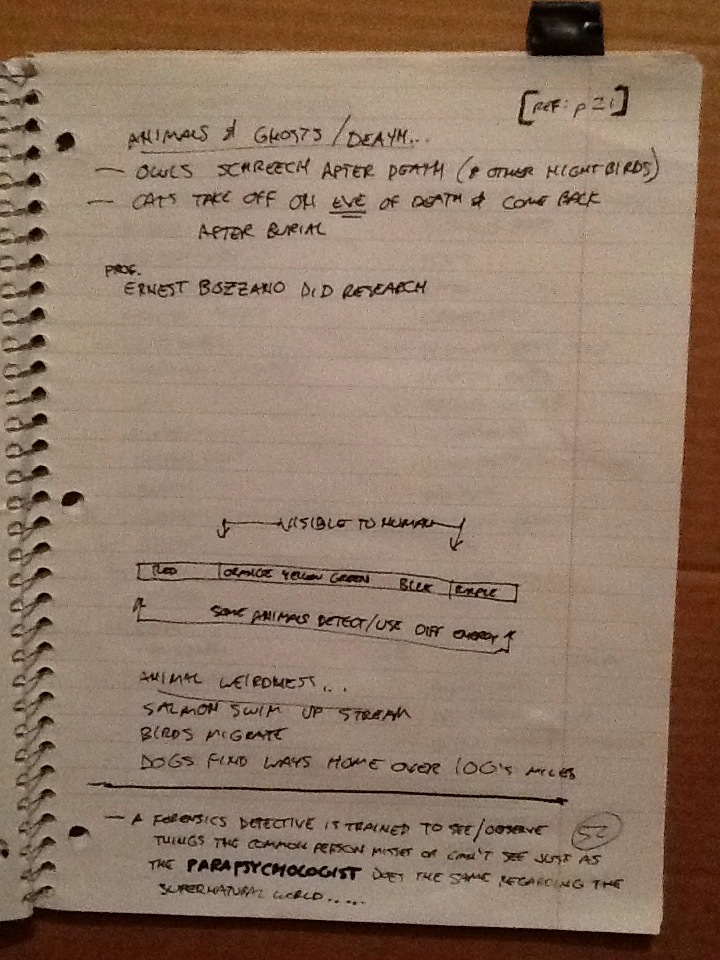 [REF: p 21]
ANIMALS & GHOSTS/DEATH...
— OWLS SCHREECH AFTER DEATH (& OTHER NIGHT BIRDS)
— CATS TAKE OFF ON EVE OF DEATH & COME BACK
AFTER BURIAL
PROF.
ERNEST BOZZANO DID RESEARCH
VISIBLE TO HUMAN
RED ORANGE YELLOW GREEN BLUE PURPLE
SOME ANIMALS DETECT/USE DIFF ENERGY
ANIMAL WEIRDNESS...
SALMON SWIM UP STREAM
BIRDS MIGRATE
DOGS FIND WAYS HOME OVER 100'S MILES
— A FORENSICS DETECTIVE IS TRAINED TO SEE/OBSERVE
THINGS THE COMMON PERSON MISSES OR CAN'T SEE JUST AS
THE PARAPSYCHOLOGIST DOES THE SAME REGARDING THE
SUPERNATURAL WORLD.....
52